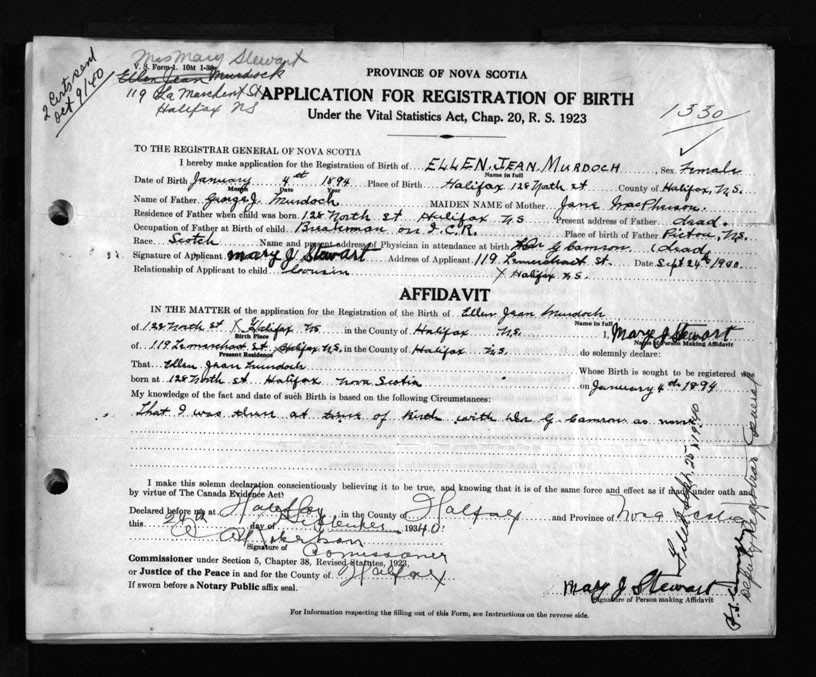 2 Certs send
Oct 9/40
Mrs Mary Stewart
V. S. Form 1. 10M 1-39
Ellen Jean Murdock
119 La Marchent St
Halifax NS
PROVINCE OF NOVA SCOTIA
APPLICATION FOR REGISTRATION OF BIRTH
Under the Vital Statistics Act, Chap. 20, R. S. 1923
1330
TO THE REGISTRAR GENERAL OF NOVA SCOTIA
I hereby make application for the Registration of Birth of ELLEN JEAN MURDOCH, Sex Female
Name in full
Date of Birth January 4th 1894 Place of Birth Halifax 128 North st County of Halifax, N.S.
Month Date Year
Name of Father George J. Murdoch MAIDEN NAME of Mother Jane MacPherson.
Residence of Father when child was born 128 North St Halifax N S Present address of Father dead.
Occupation of Father at Birth of child Breakman on I.C.R. Place of birth of Father Pictou, N.S.
Race Scotch Name and present address of Physician in attendance at birth G Camron (dead)
Signature of Applicant Mary J Stewart Address of Applicant 119 Lemerchant St. Date Sept 24th 1940
Relationship of Applicant to child Cousin Halifax N.S.
AFFIDAVIT
IN THE MATTER of the application for the Registration of the Birth of Ellen Jean Murdoch
Name in full
of 128 North St Halifax NS in the County of Halifax N.S. I, Mary J Stewart
Birth Place Name of Person making Affidavit
of 119 Lemerchant St. Halifax N.S, in the County of Halifax N.S. do solemnly declare:
Present Residence
That Ellen Jean Murdoch Whose Birth is sought to be registered was
born at 128 North St Halifax Nova Scotia on January 4th 1894
My knowledge of the fact and date of such Birth is based on the following Circumstances:
That I was there at time of birth with G Camron as nurse
I make this solemn declaration conscientiously believing it to be true, and knowing that it is of the same force and effect as if made under oath and
by virtue of The Canada Evidence Act
Declared before me at Halifax in the County of Halifax and Province of Nova Scotia
this 24th day of September 1940.
Signature of
Comissioner
Commissioner under Section 5, Chapter 38, Revised Statutes, 1923,
or Justice of the Peace in and for the County of Halifax
If sworn before a Notary Public affix seal.
Mary J Stewart
Signature of Person making Affidavit
For Information respecting the filling out of this Form, see Instructions on the reverse side.
Filed Sept. 25, 1940
Deputy Registrar General